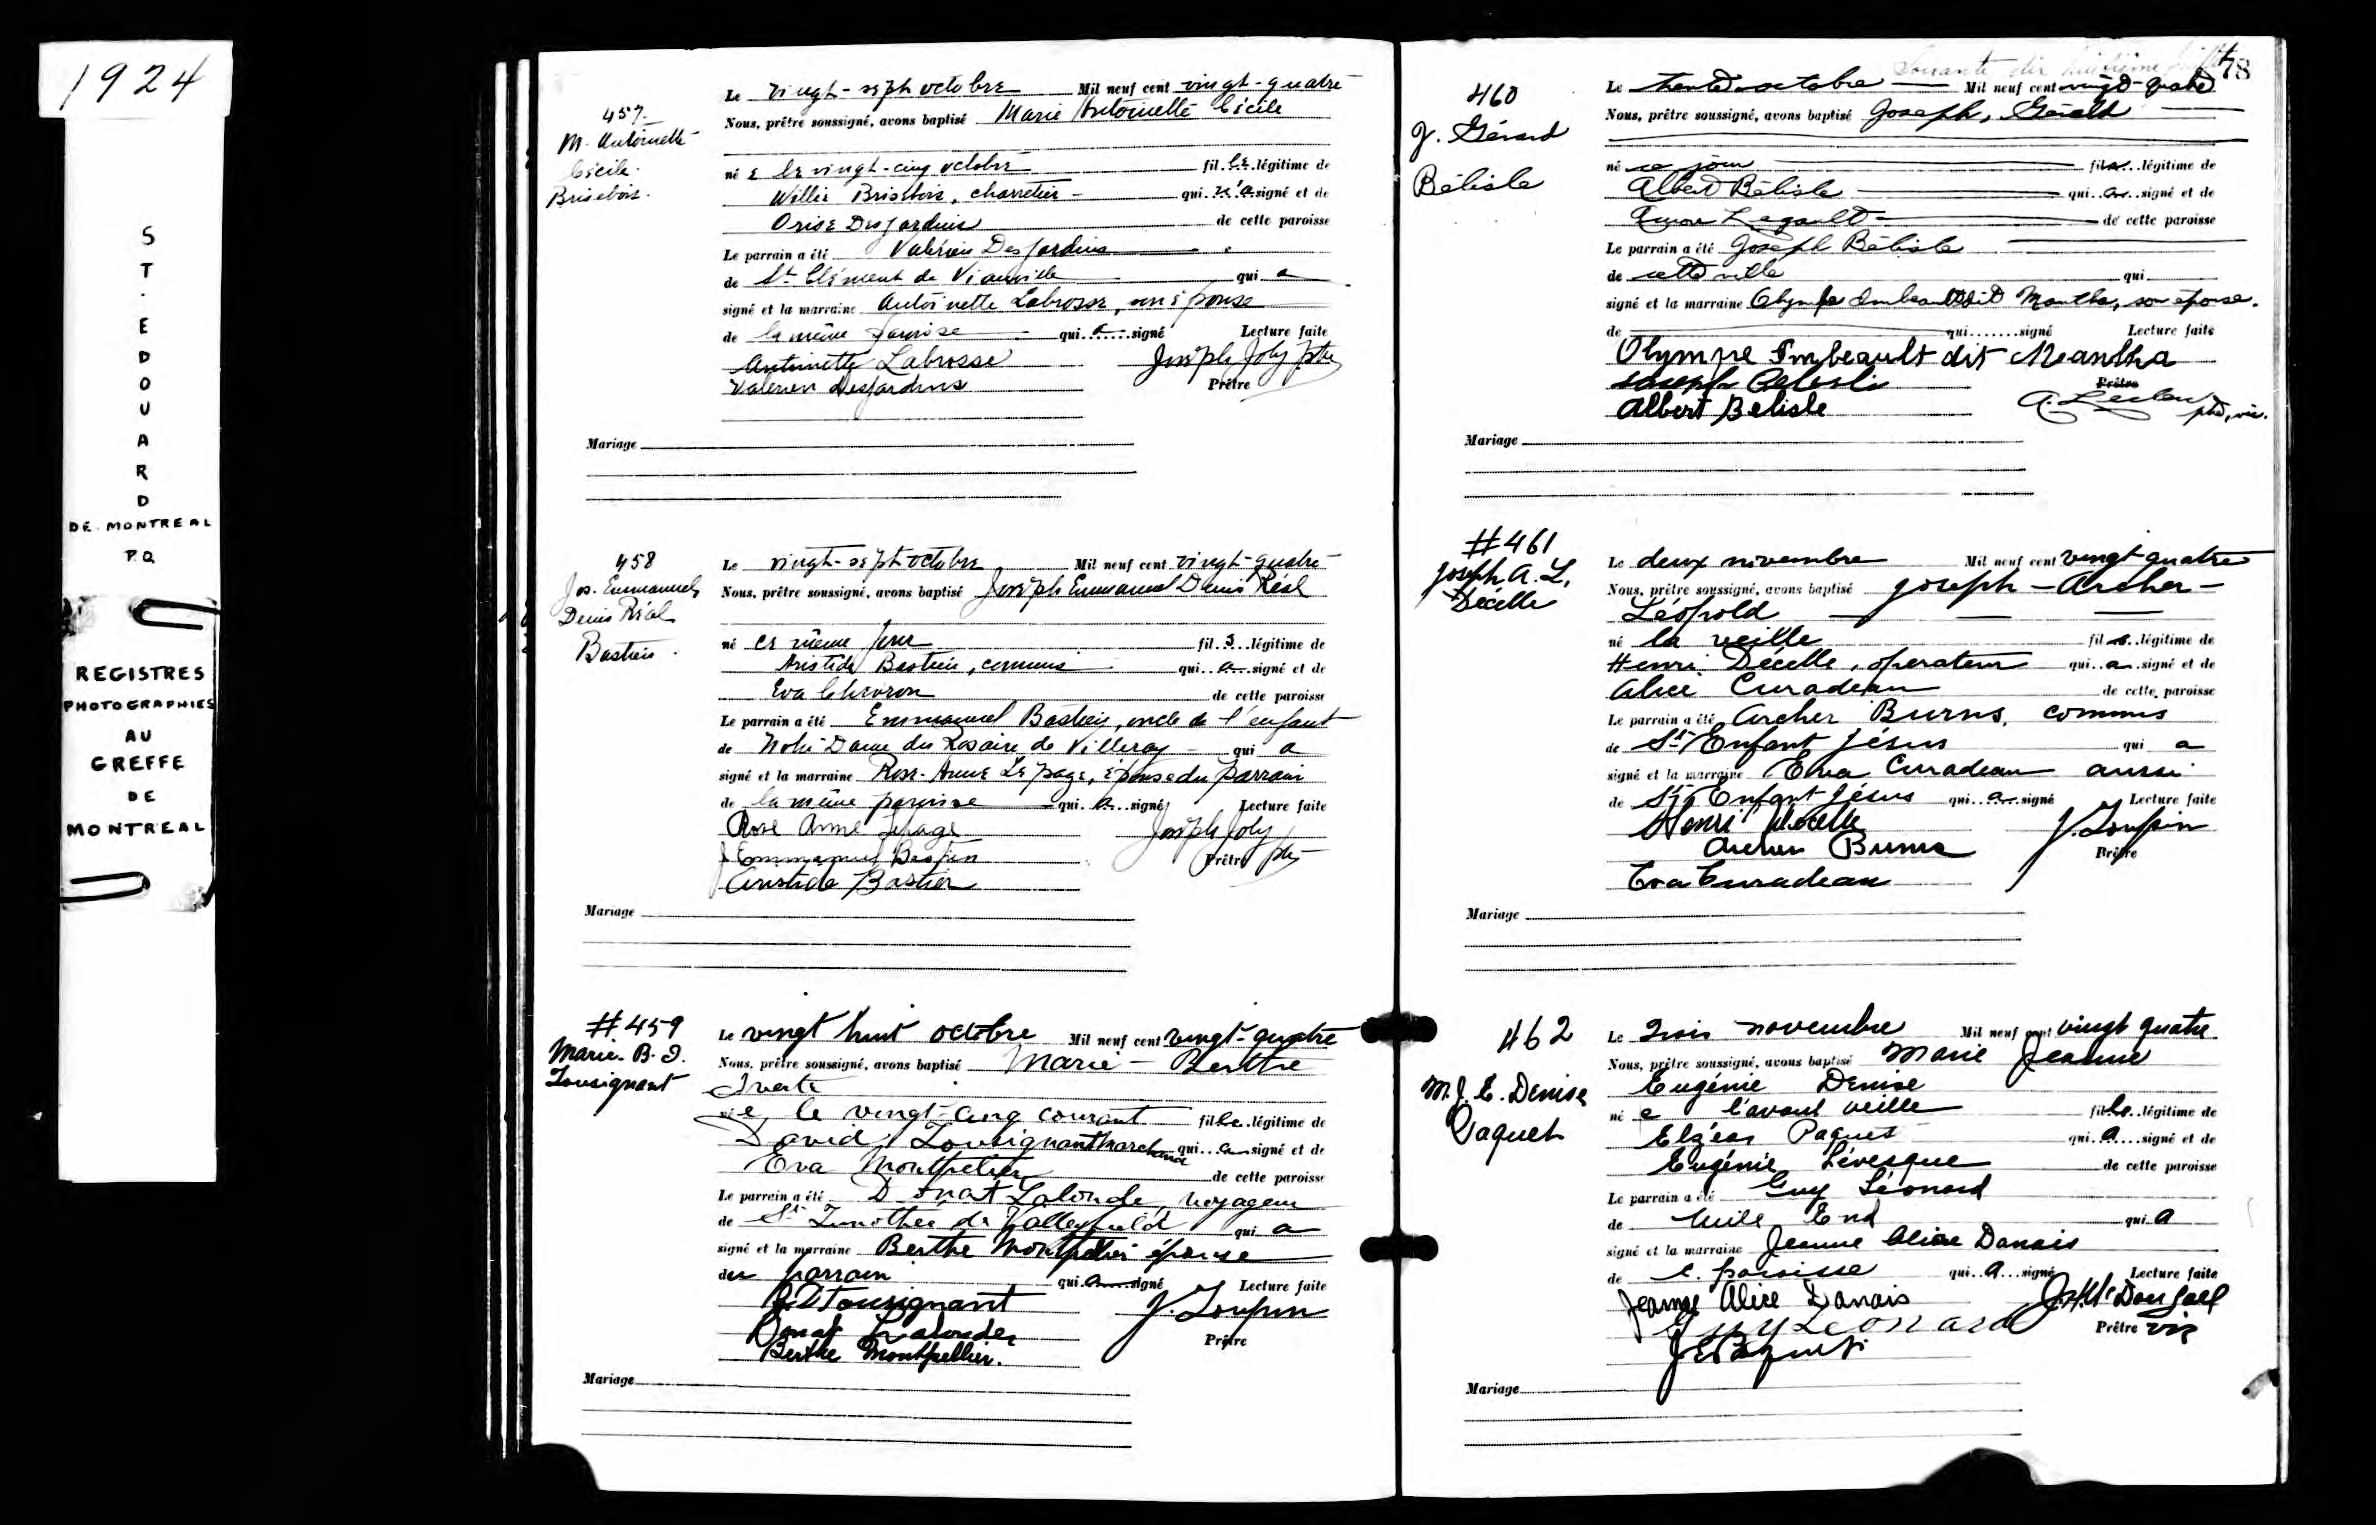 1924
ST. EDOUARD
DE MONTREAL
P.Q.
REGISTRES
PHOTOGRAPHIES
AU
GREFFE
DE
MONTREAL
457
M. Antoinette
Cécile
Brisebois.
Le vingt-sept octobre Mil neuf cent vingt-quatre
Nous, prêtre soussigné, avons baptisé Marie Antoinette Cécile
né e le vingt-cinq octobre fil le légitime de
Willie Brisebois, charretier qui n'a signé et de
Orise Desjardins de cette paroisse
Le parrain a été Valérien Desjardins
de St Clément de Viauville qui a
signé et la marraine Antoinette Labrosse, son épouse
de la même paroisse qui a signé Lecture faite
Antoinette Labrosse Joseph Joly ptre
Valerien Desjardins Prêtre
Mariage
458
Jos. Emmanuel
Denis Réal
Bastien.
Le vingt-sept octobre Mil neuf cent vingt-quatre
Nous, prêtre soussigné, avons baptisé Joseph Emmanuel Denis Réal
né ce même jour fil s légitime de
Aristide Bastien, commis qui a signé et de
Eva Chevron de cette paroisse
Le parrain a été Emmanuel Bastien, oncle de l'enfant
de Notre Dame du Rosaire de Villeray qui a
signé et la marraine Rose-Anne Lepage, épouse du parrain
de la même paroisse qui a signé Lecture faite
Rose Anne Lepage Joseph Joly
J Emmanuel Bastien Prêtre ptre
Aristide Bastien
Mariage
#459
Marie-B. I.
Tousignant
Le vingt huit octobre Mil neuf cent vingt-quatre
Nous, prêtre soussigné, avons baptisé Marie-Berthe
né e le vingt-cinq courant fil le légitime de
David Tousignant marchand qui a signé et de
Eva Montpetier de cette paroisse
Le parrain a été Donat Lalonde, voyageur
de St Timothée de Valleyfield qui a
signé et la marraine Berthe Montpetier épouse
du parrain qui a signé Lecture faite
Tousignant J. Loupin
Donat Lalonde
Berthe Montpellier. Prêtre
Mariage
78
460
J. Gérard
Bélisle
Le trente octobre Mil neuf cent vingt-quatre
Nous, prêtre soussigné, avons baptisé Joseph, Gérald
né ce jour fil s légitime de
Albert Bélisle qui a signé et de
Legault de cette paroisse
Le parrain a été Joseph Bélisle
de cette ville qui
signé et la marraine Olympe Imbeault dit Mantha, son épouse.
de qui signé Lecture faite
Olympe Imbeault dit Mantha
Joseph Prêtre
Albert Belisle A. Leclerc ptre, vic.
Mariage
#461
Joseph A. L.
Décelle
Le deux novembre Mil neuf cent vingt-quatre
Nous, prêtre soussigné, avons baptisé Joseph - Archer -
Léopold
né la veille fil s légitime de
Henri Décelle, operateur qui a signé et de
Alice Curadeau de cette paroisse
Le parrain a été Archer Burns, commis
de St Enfant Jésus qui a
signé et la marraine Eva Curadeau aussi
de St Enfant Jésus qui a signé Lecture faite
Henri Décelle J. Loupin
Archer Burns Prêtre
Eva Curadeau
Mariage
462
M. J. E. Denise
Paquet
Le trois novembre Mil neuf cent vingt quatre
Nous, prêtre soussigné, avons baptisé Marie Jeanne
Eugénie Denise
né e l'avant veille fil le légitime de
Elzéar Paquet qui a signé et de
Eugénie Lévesque de cette paroisse
Le parrain a été Guy Léonard
de Mile End qui a
signé et la marraine Jeanne Alice Danais
de c. paroisse qui a signé Lecture faite
Jeanne Alice Danais McDougall
Guy Leonard Prêtre vic
J E Paquet
Mariage